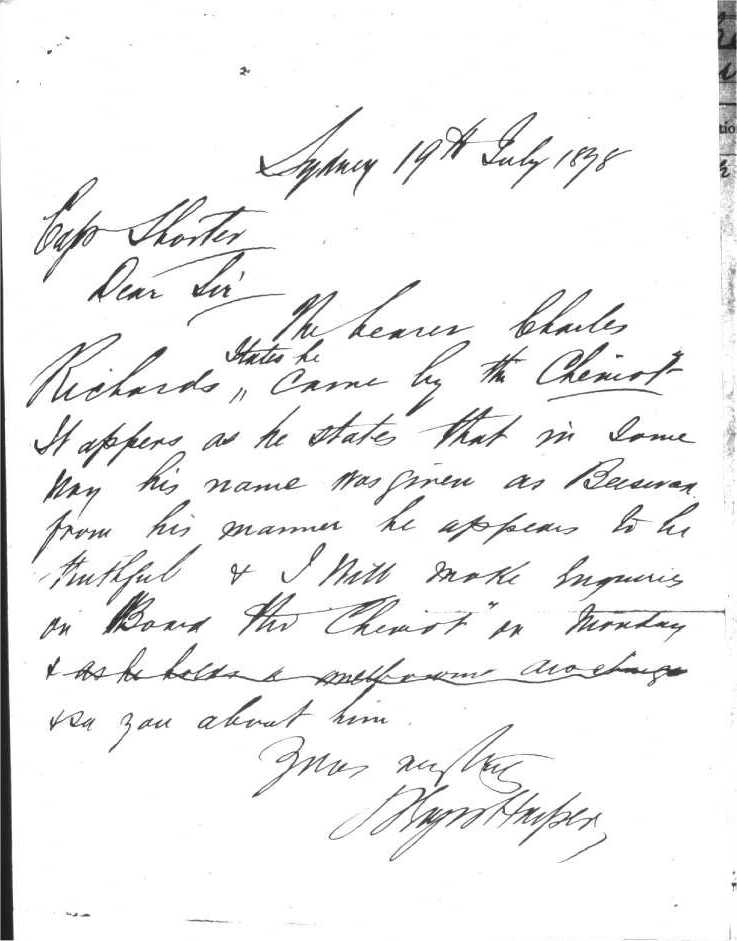 Sydney 19th July 1878
Capt Shorter
Dear Sir
The bearer Charles
States he
Richards " Came by the Cheviot"
It appers as he states that in some
way his name was given as
from his manner he appears to be
truthful & I will make Enquiries
on Board the Cheviot" on Monday
& as he holds a melbourne
& see you about him
Yours